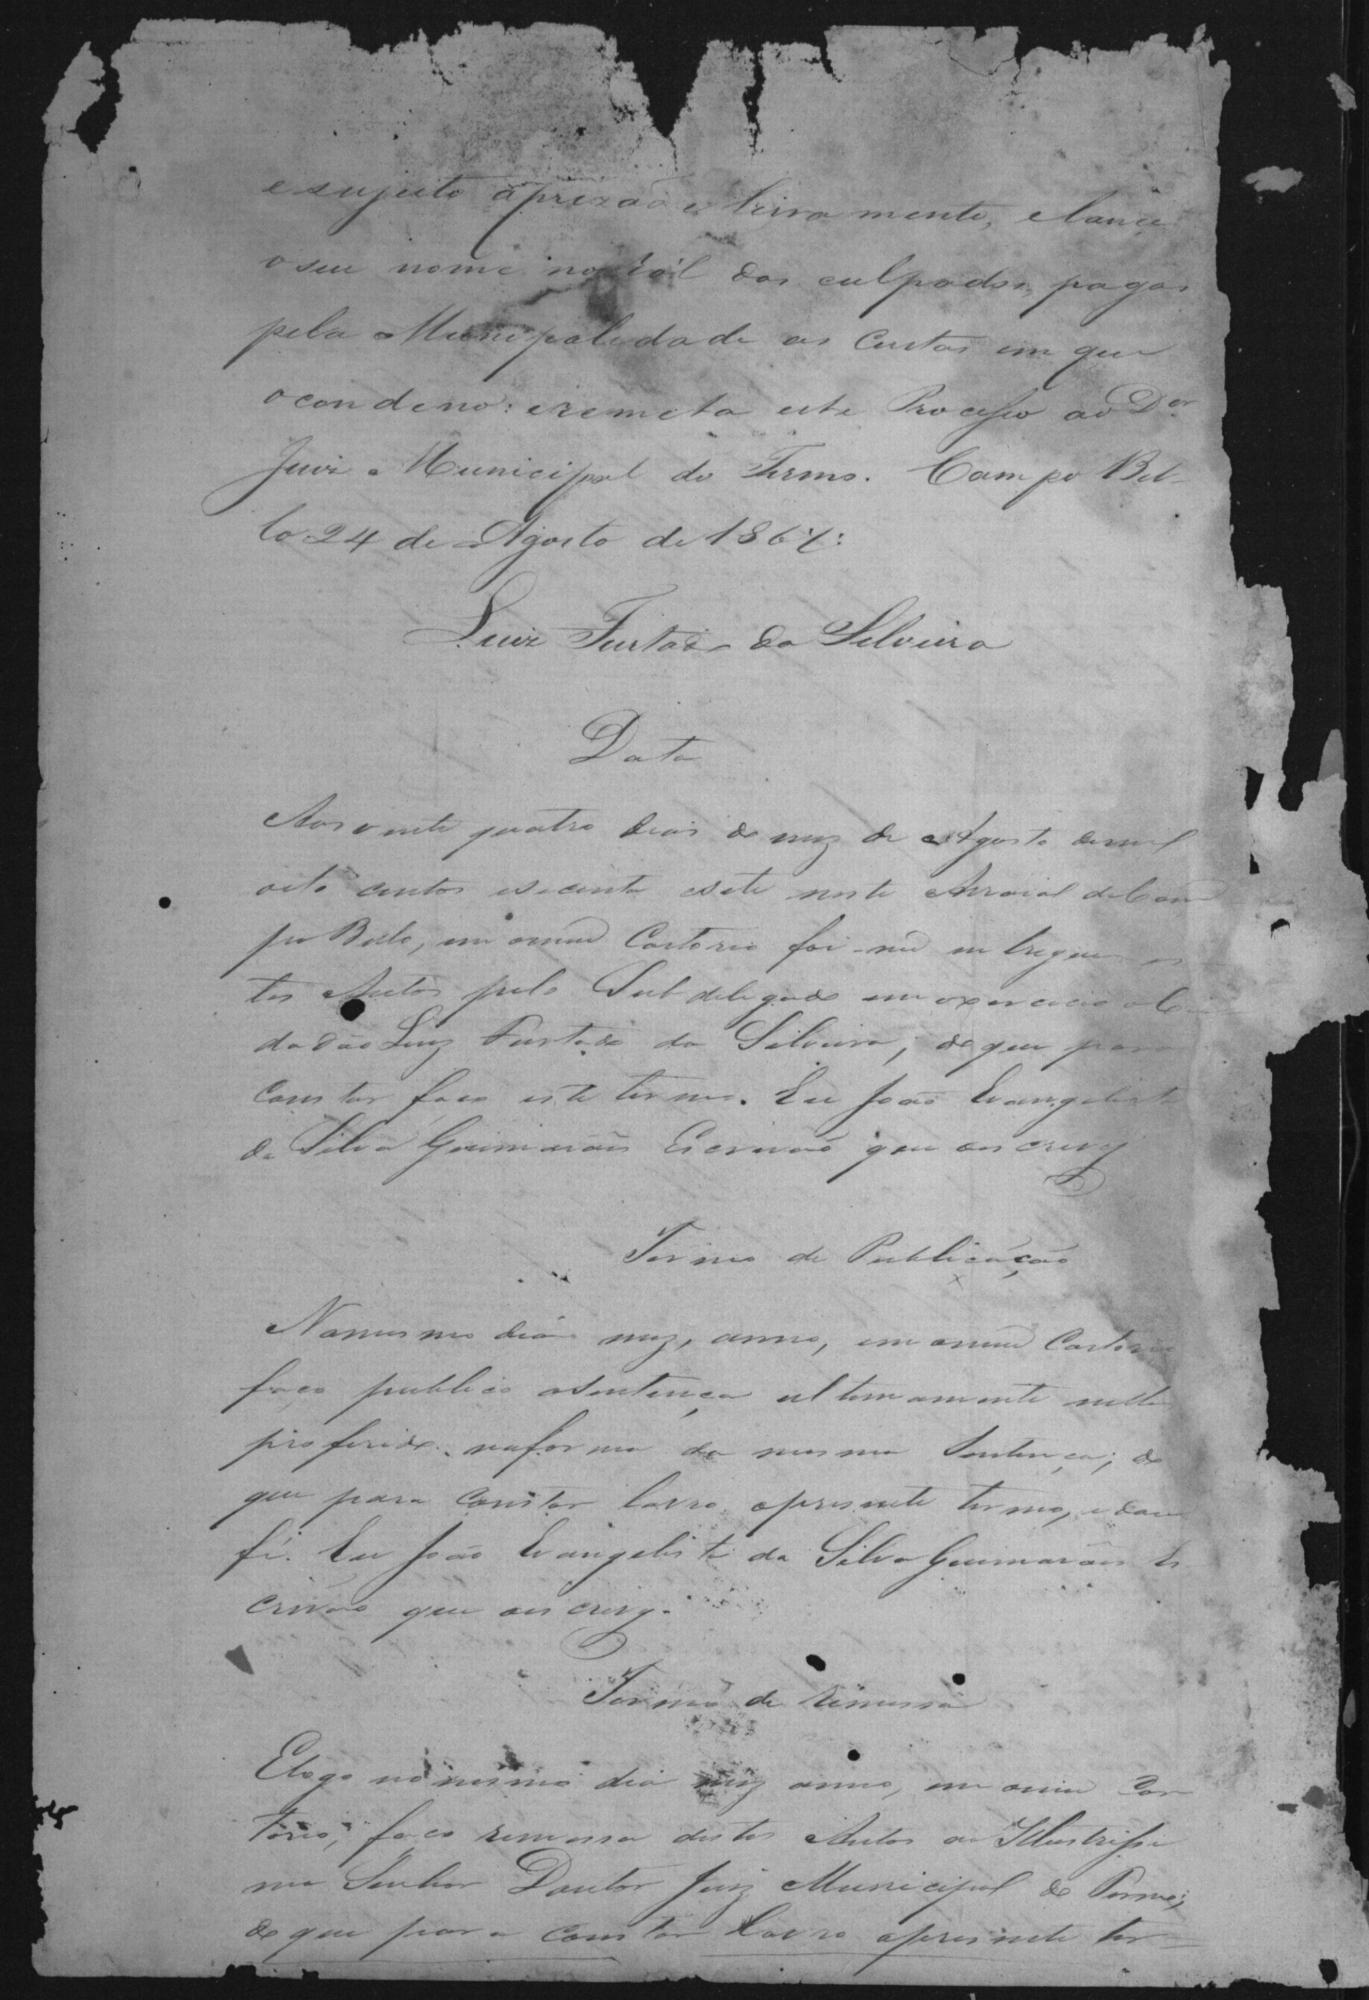 e sujeito a prizão e livramento, e lance
o seu nome no rol dos culpados, pagas
pela Municipalidade as Custas em que
o condeno: e remeta este Processo ao Dor
Juiz Municipal do Termo. Campo Bel-
lo 24 de Agosto de 1867:
Luiz Furtado da Silveira
Data
Aos vinte quatro dias do mez de Agosto de mil
oito centos e secenta e sete neste Arraial de Cam
po Bello, em omeu Cartorio foi-me entregue es
tes Autos pelo Subdelegado em exercicio o Ci
dadão Luiz Furtado da Silveira, do que para
constar faço este termo. Eu João Evangelista
da Silva Guimarães Escrivão que escrevy
Termo de Publicação
No mesmo dia mez, anno, em omeu Cartorio
faço publico a sentença ultimamente nelle
proferida na forma da mesma Sentença; do
que para constar lavro o presente termo, e dou
fé. Eu João Evangelista da Silva Guimarães Es
crivão que escrevy.
Termo de remessa
E logo no mesmo dia mez anno, em omeu Car
torio, faço remessa destes Autos ao Illustrissi
mo Senhor Doutor Juiz Municipal do Termo;
do que para constar lavro o presente ter-